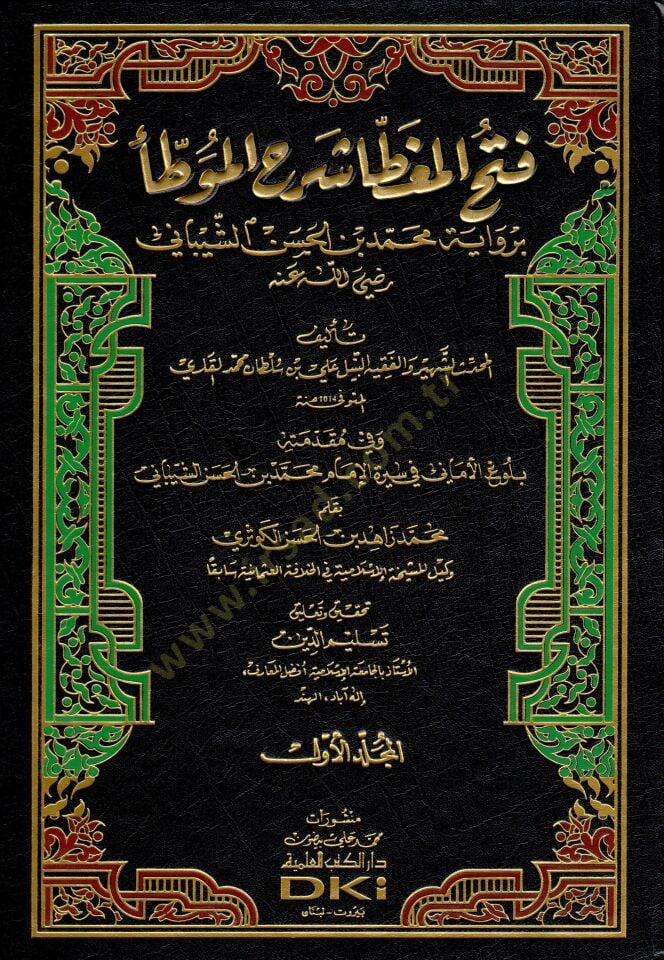 فتح المغطّا شرح الموطّأ
برواية محمد بن الحسن الشّيباني
رضي الله عنه
تأليف
المحدث الشهير والفقيه النبيل علي بن سلطان محمد القاري
المتوفى سنة 1014هـ
وفي مقدمته
بلوغ الأماني في سيرة الإمام محمد بن الحسن الشيباني
بقلم
محمد زاهد بن الحسن الكوثري
وكيل المشيخة الإسلامية في الخلافة العثمانية سابقا
تحقيق وتعليق
تسليم الدين
الأستاذ بالجامعة الإسلامية أفضل المعارف،
إله آباد، الهند
المجلد الأول
منشورات
محمد علي بيضون
دار الكتب العلمية
DKi
بيروت - لبنان